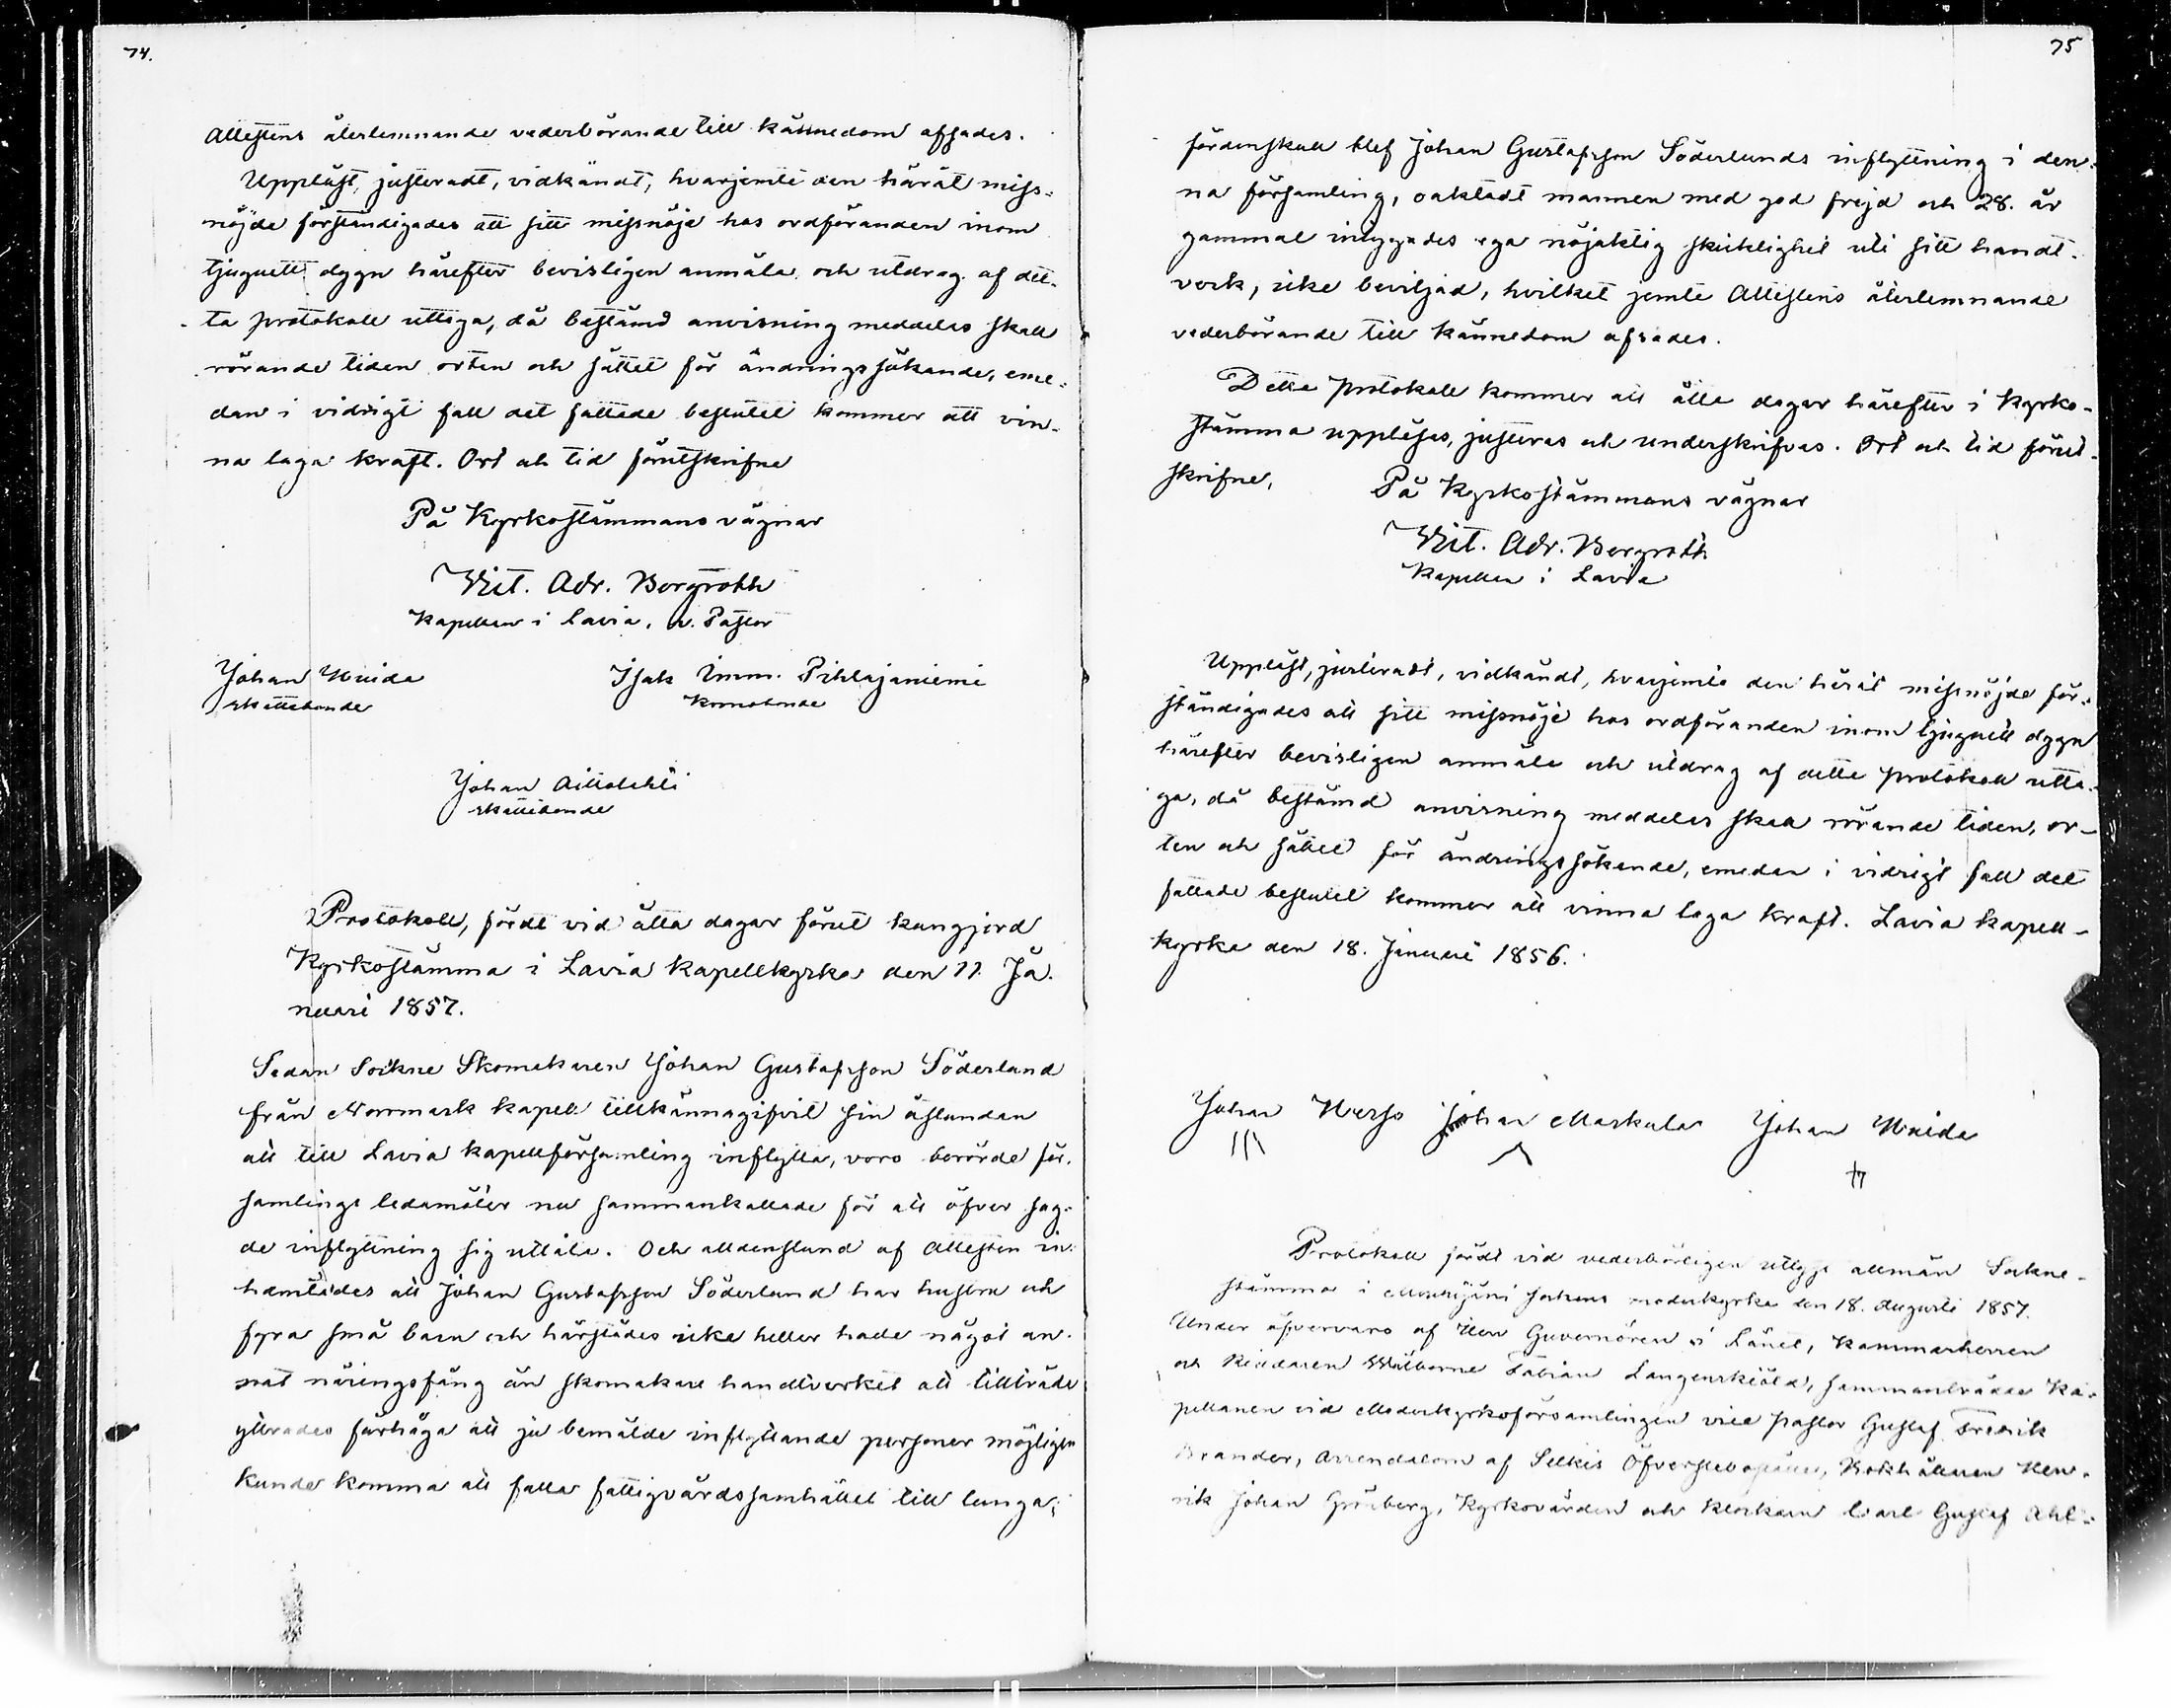 74.
Attestens återlemnande vederbörande till kännedom afsades.
Uppläst, justeradt, vidkändt, hvarjemte den häråt miss-
nöjde förständigades att sitt missnöje hos ordföranden inom
tjuguett dygn härefter bevisligen anmäla och utdrag af det-
ta protokoll uttaga, då bestämd anvisning meddelas skall
rörande tiden orten och sättet för ändringssökande, eme-
dan i vidrigt fall det fattade beslutet kommer att vin-
na laga kraft. Ort och tid förutskrifne
På Kyrkostämmans vägnar
Vit. Adr. Bergroth
Kapellan i Lavia, v. Pastor
Johan Uuida
skattebonde
Isak Imm. Pihlajaniemi
Kronobonde
Johan Aittolahti
skattebonde
Protokoll, fördt vid åtta dagar förut kungjord
Kyrkostämma i Lavia kapellkyrka den 11 Ja-
nuari 1857.
Sedan Sockne Skomakaren Johan Gustafsson Söderlund
från Norrmark kapell tillkännagifvit sin åstundan
att till Lavia kapellförsamling inflytta, voro berörde för-
samlings ledamöter nu sammankallade för att öfver sag-
de inflyttning sig uttala. Och alldenstund af Attesten in-
hemtades att Johan Gustafsson Söderlund har hustru och
fyra små barn och härstädes icke heller hade något an-
nat näringsfång än skomakare handtverket att tillträda
yttrades farhåga att ju bemälde inflyttande personer möjligen
kunde komma att falla fattigvårdssamhället till tunga;
75
fördenskull blef Johan Gustafsson Söderlunds inflyttning i den-
na församling, oaktadt mannen med god frejd och 28. år
gammal intygades ega nöjaktig skicklighet uti sitt handt-
verk, icke beviljad, hvilket jemte Attestens återlemnande
vederbörande till kännedom afsades.
Detta protokoll kommer att åtta dagar härefter i Kyrko-
stämma uppläsas, justeras och underskrifvas. Ort och tid förut-
skrifne,
På Kyrkostämmans vägnar
Vit. Adr. Bergroth
Kapellan i Lavia
Uppläst, justeradt, vidkändt, hvarjemte den häråt missnöjde för-
ständigades att sitt missnöje hos ordföranden inom tjuguett dygn
härefter bevisligen anmäla och utdrag af detta protokoll utta-
ga, då bestämd anvisning meddelas skall rörande tiden, or-
ten och sättet för ändringssökande, emedan i vidrigt fall det
fattade beslutet kommer att vinna laga kraft. Lavia kapell-
kyrka den 18. Januari 1856.
Johan Johan Markula Johan Uuida
Protokoll fördt vid vederbörligen utlyst allmän Sockne-
stämma i Mouhijärvi sockens moderkyrka den 18. Augusti 1857.
Under öfvervaro af Herr Guvernören i Länet, Kammarherren
och Riddaren Fabian Langenskiöld, sammanträdde Ka-
pellanen vid Moderkyrkoförsamlingen vice pastor Gustaf Fredrik
Brander, Arrendatorn af Selkis Öfverstebostället, Rusthållaren Hen-
rik Johan Grönberg, Kyrkovärden och klockaren Carl Gustaf Ahl-